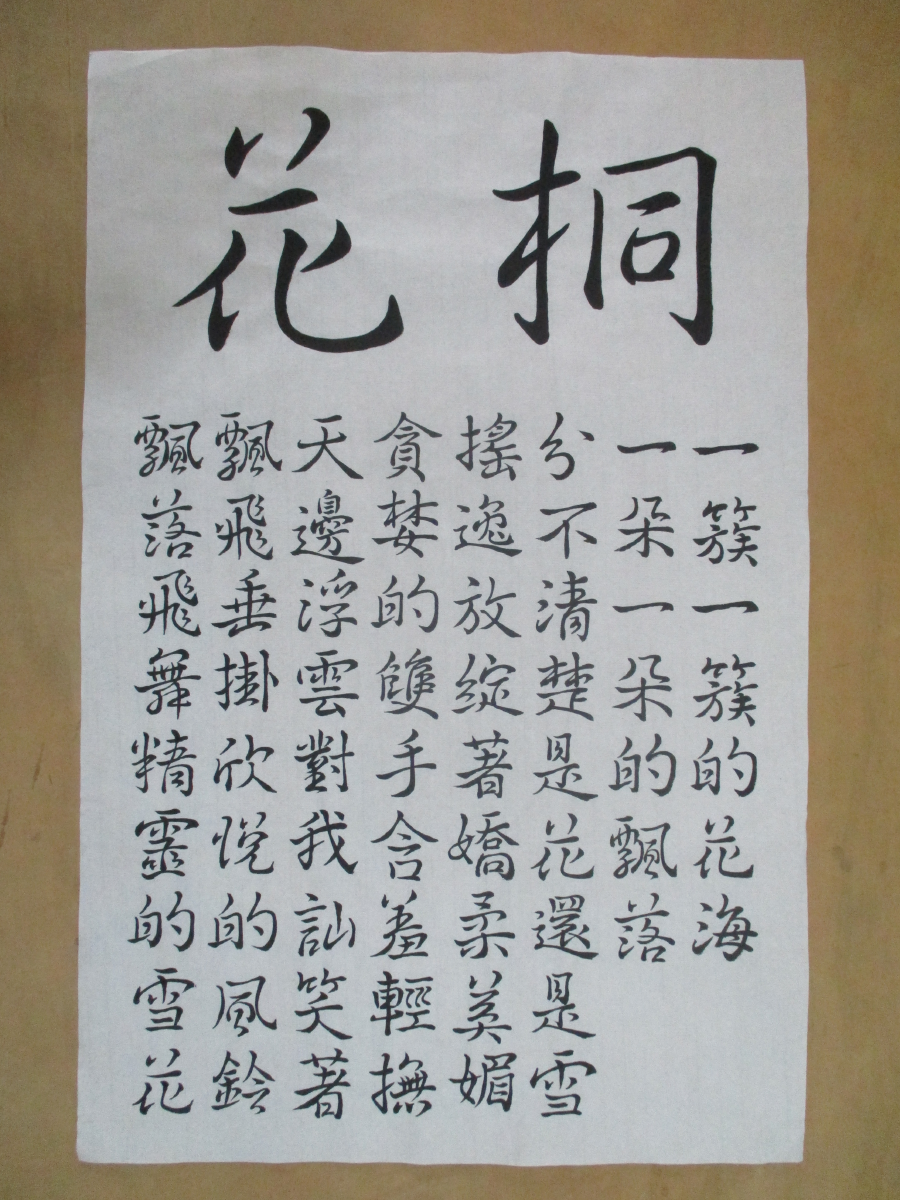 桐花
一簇一簇的花海
一朵一朵的飄落
分不清楚是花還是雪
搖逸放綻著嬌柔美媚
貪婪的雙手含羞輕撫
天邊浮雲對我訕笑著
飄飛垂掛欣悅的風鈴
飄落飛舞精靈的雪花